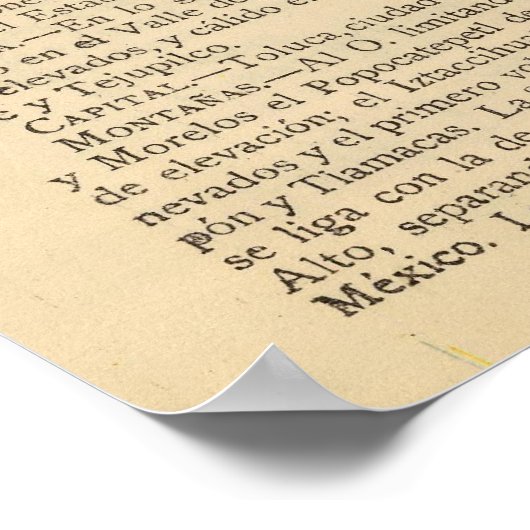 Estado
A.—En lo
o en el Valle de
elevados, y cálido e
e y Tejupilco.
CAPITAL.—Toluca, ciudad
MONTAÑAS.—Al O. limitando
y Morelos el Popocatepetl d
de elevación; el Iztaccihu
nevados y el primero vo
pón y Tlamacas. La
se liga con la de
Alto, separan
México. I